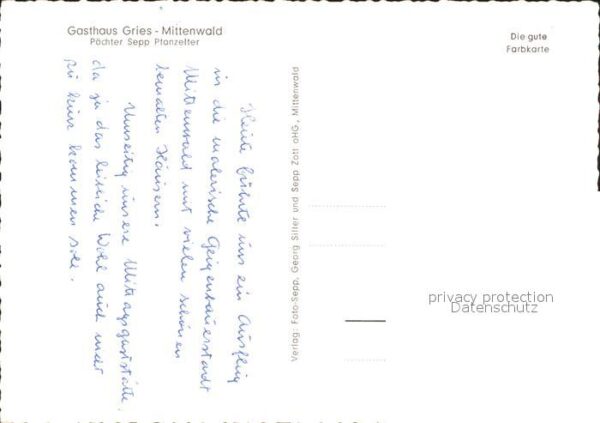 Gasthaus Gries - Mittenwald
Pächter Sepp Pfanzelter
Die gute
Farbkarte
Heute führte uns ein Ausflug
in die malerische Geigenbauerstadt
Mittenwald mit vielen schönen
bemalten Häusern.
Umseitig unsere Mittagsgaststätte,
da ja das leibliche Wohl auch nicht
zu kurz kommen soll.
Verlag: Foto-Sepp, Georg Siller und Sepp Zott oHG., Mittenwald
privacy protection
Datenschutz